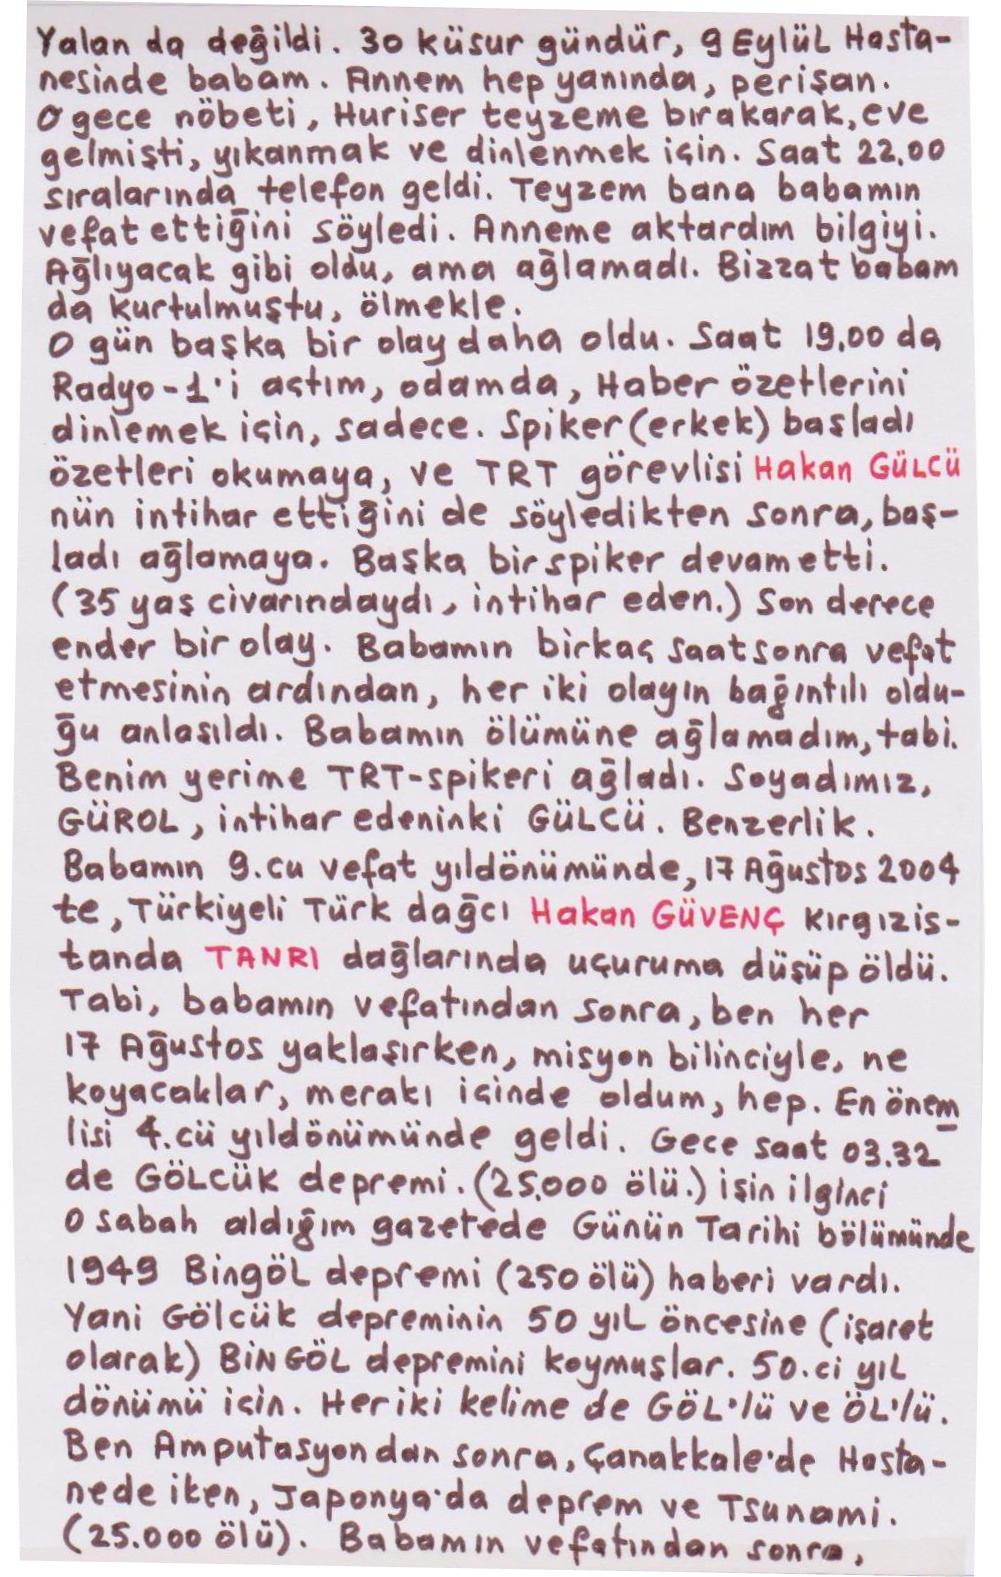 Yalan da değildi. 30 küsur gündür, 9 Eylül Hasta-
nesinde babam. Annem hep yanında, perişan.
O gece nöbeti, Huriser teyzeme bırakarak, eve
gelmişti, yıkanmak ve dinlenmek için. Saat 22,00
sıralarında telefon geldi. Teyzem bana babamın
vefat ettiğini söyledi. Anneme aktardım bilgiyi.
Ağlıyacak gibi oldu, ama ağlamadı. Bizzat babam
da kurtulmuştu, ölmekle.
O gün başka bir olay daha oldu. Saat 19,00 da
Radyo-1'i açtım, odamda, Haber özetlerini
dinlemek için, sadece. Spiker (erkek) başladı
özetleri okumaya, ve TRT görevlisi Hakan GÜLCÜ
nün intihar ettiğini de söyledikten sonra, baş-
ladı ağlamaya. Başka bir spiker devam etti.
(35 yaş civarındaydı, intihar eden.) Son derece
ender bir olay. Babamın birkaç saat sonra vefat
etmesinin ardından, her iki olayın bağıntılı oldu-
ğu anlaşıldı. Babamın ölümüne ağlamadım, tabi.
Benim yerime TRT-spikeri ağladı. Soyadımız,
GÜROL, intihar edeninki GÜLCÜ. Benzerlik.
Babamın 9.cu vefat yıldönümünde, 17 Ağustos 2004
te, Türkiyeli Türk dağcı Hakan GÜVENÇ Kırgızis-
tanda TANRI dağlarında uçuruma düşüp öldü.
Tabi, babamın vefatından sonra, ben her
17 Ağustos yaklaşırken, misyon bilinciyle, ne
koyacaklar, merakı içinde oldum, hep. En önem
lisi 4.cü yıldönümünde geldi. Gece saat 03.32
de GÖLCÜK depremi. (25.000 ölü.) işin ilginci
O sabah aldığım gazetede Günün Tarihi bölümünde
1949 Bingöl depremi (250 ölü) haberi vardı.
Yani Gölcük depreminin 50 yıl öncesine (işaret
olarak) BİNGÖL depremini koymuşlar. 50.ci yıl
dönümü için. Her iki kelime de GÖL'lü ve ÖL'lü.
Ben Amputasyondan sonra, Çanakkale'de Hasta-
nede iken, Japonya'da deprem ve Tsunami.
(25.000 ölü). Babamın vefatından sonra,